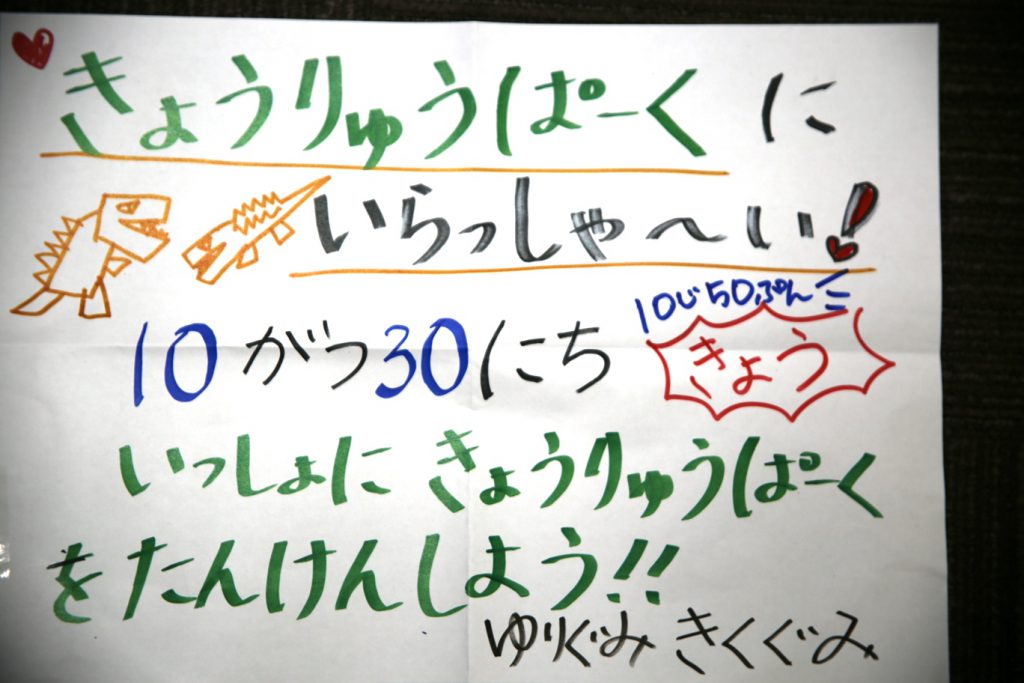 きょうりゅうぱーくに
いらっしゃ〜い!
10じ50ぷん
10がつ30にち きょう
いっしょに きょうりゅうぱーく
をたんけんしよう!!
ゆりぐみ きくぐみ